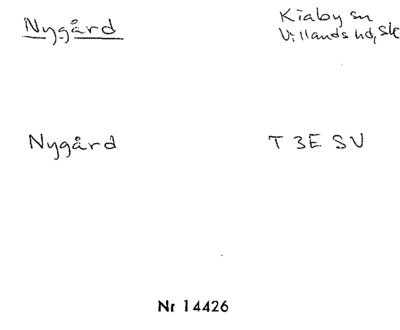 Nygård
Kiaby sn
Villands hd, Sk
Nygård
T 3E SV
Nr 14426